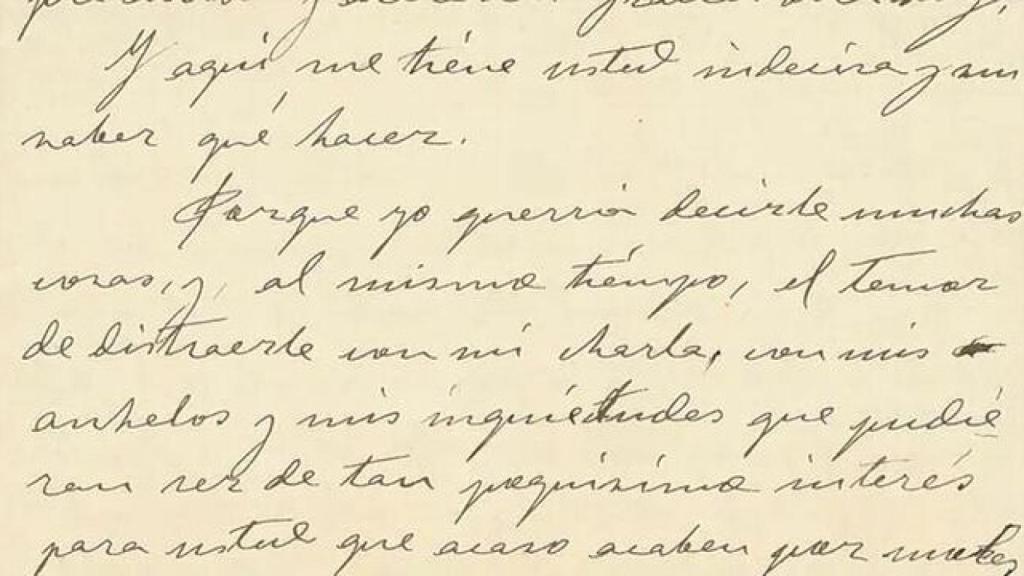 Y aquí me tiene usted indecisa y sin
saber qué hacer.
Porque yo querría decirle muchas
cosas, y, al mismo tiempo, el temor
de distraerle con mi charla, con mis
anhelos y mis inquietudes que pudie
ran ser de tan poquísimo interés
para usted que acaso acaben por